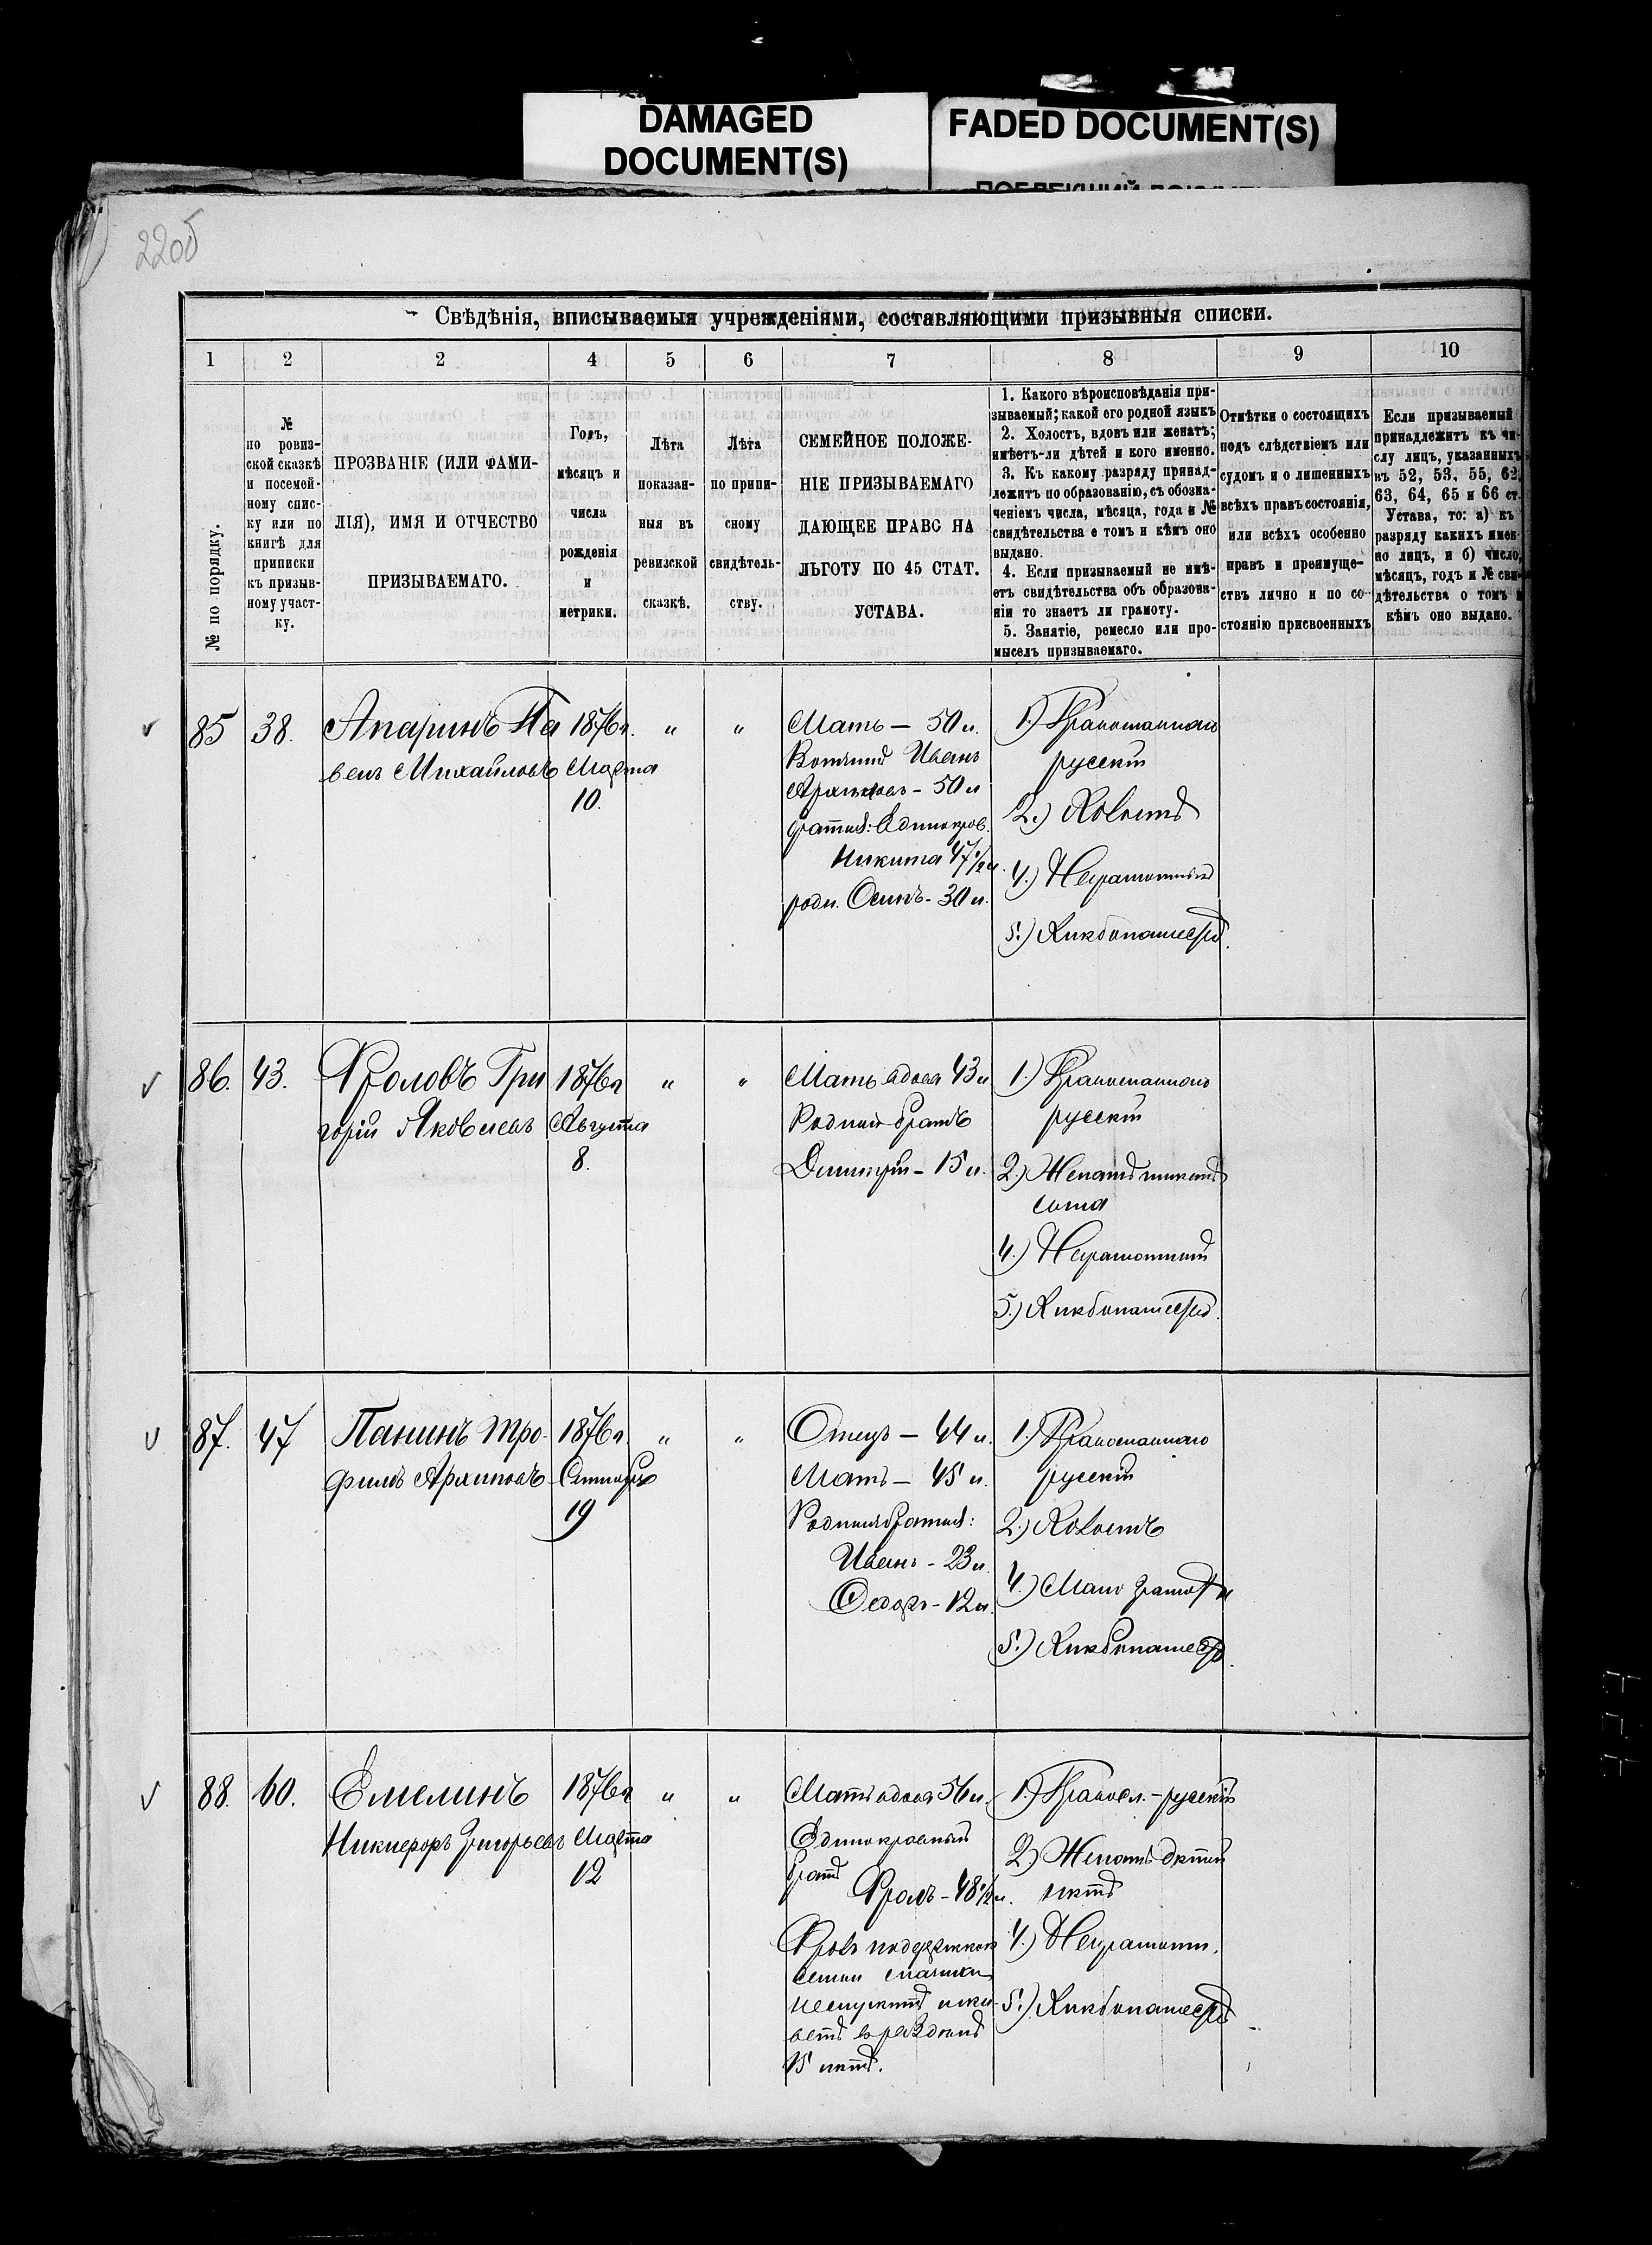 DAMAGED
DOCUMENT(S)
FADED DOCUMENT(S)
220б
Свѣдѣнія, вписываемыя учрежденіями, составляющими призывныя списки.
1 2 2 4 5 6 7 8 9 10
№ по порядку.
№
по ровиз-
ской сказкѣ
и посемей-
ному спис-
ку или по
книгѣ для
приписки
къ призыв-
ному участ-
ку.
ПРОЗВАНІЕ (ИЛИ ФАМИ-
ЛІЯ), ИМЯ И ОТЧЕСТВО
ПРИЗЫВАЕМАГО.
Годъ,
мѣсяцъ и
числа
рожденія
и
метрики.
Лѣта
показан-
ныя въ
ревизской
сказкѣ.
Лѣта
по припи-
сному
свидѣтель-
ству.
СЕМЕЙНОЕ ПОЛОЖЕ-
НІЕ ПРИЗЫВАЕМАГО
ДАЮЩЕЕ ПРАВО НА
ЛЬГОТУ ПО 45 СТАТ.
УСТАВА.
1. Какого вѣроисповѣданія при-
зываемый; какой его родной языкъ
2. Холостъ, вдовъ или женатъ;
имѣетъ-ли дѣтей и кого именно.
3. Къ какому разряду принад-
лежитъ по образованію, съ обозна-
ченіемъ числа, мѣсяца, года и №
свидѣтельства о томъ и кѣмъ оно
выдано.
4. Если призываемый не имѣ-
етъ свидѣтельства объ образова-
ніи то знаетъ ли грамоту.
5. Занятіе, ремесло или про-
мыселъ призываемаго.
Отмѣтки о состоящихъ
подъ слѣдствіемъ или
судомъ и о лишенныхъ
всѣхъ правъ состоянія,
или всѣхъ особенно
правъ и преимуще-
ствъ лично и по со-
стоянію присвоенныхъ
Если призываемый
принадлежитъ къ чи-
слу лицъ, указанныхъ
въ 52, 53, 55, 62,
63, 64, 65 и 66 ст.
Устава, то: а) къ
разряду какихъ имен-
но лицъ, и б) число,
мѣсяцъ, годъ и № сви-
дѣтельства о томъ и
кѣмъ оно выдано.
85 38. Апаринъ Па
велъ Михайловъ
1876 г.
Марта
10.
" "
Мать — 50 л.
Вотчимъ Иванъ
Архиповъ - 50 л
братья: Единокров.
Никита 47 1/2 л.
родн. Осипъ - 30 л.
1.) Православнаго
русскій
2.) Холостъ
4.) Неграмотный
5.) Хлѣбопашество.
86. 43. Фроловъ Гри
горій Яковлевъ
1876 г
Августа
8.
" "
Мать вдова 43 л
Родной братъ
Дмитрій - 15 л.
1.) Православнаго
русскій
2.) Женатъ
4.) Неграмотный
5.) Хлѣбопашество.
87. 47 Панинъ Тро-
фимъ Архиповъ
1876 г.
Сентября
19
" "
Отецъ — 44 л.
Мать — 45 л.
Родные братья:
Иванъ - 23 л.
Ѳедоръ - 12 л.
1.) Православнаго
русскій
2.) Холостъ
4.) Мало грамотн
5.) Хлѣбопашество.
88. 60. Емелинъ
Никифоръ Григорьевъ
1876 г
Марта
12
" "
Мать вдова 56 л.
Единокровный
братъ
Фролъ - 48 1/2 л.
Фролъ
семьи мачихи
15 лѣтъ.
1.) Правосл. - русскій
2.) Женатъ дѣтей
нѣтъ
4.) Неграмотн.
5.) Хлѣбопашество